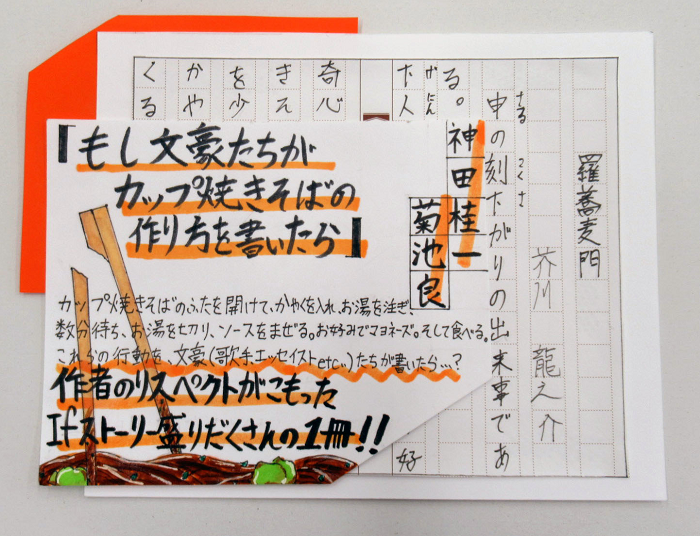 『もし文豪たちが
カップ焼きそばの
作り方を書いたら』
神田桂一
菊池良
カップ焼きそばのふたを開けて、かやくを入れ、お湯を注ぎ、
数分待ち、お湯を切り、ソースをまぜる。お好みでマヨネーズ。そして食べる。
これらの行動を、文豪(歌手エッセイストetc..)たちが書いたら…?
作者のリスペクトがこもった
Ifストーリー盛りだくさんの1冊!!
羅蕎麦門
芥川 龍之介
さる こくさ
申の刻下がりの出来事であ
る。
げにん
下人
好
奇心
きそ
を少
かや
くる